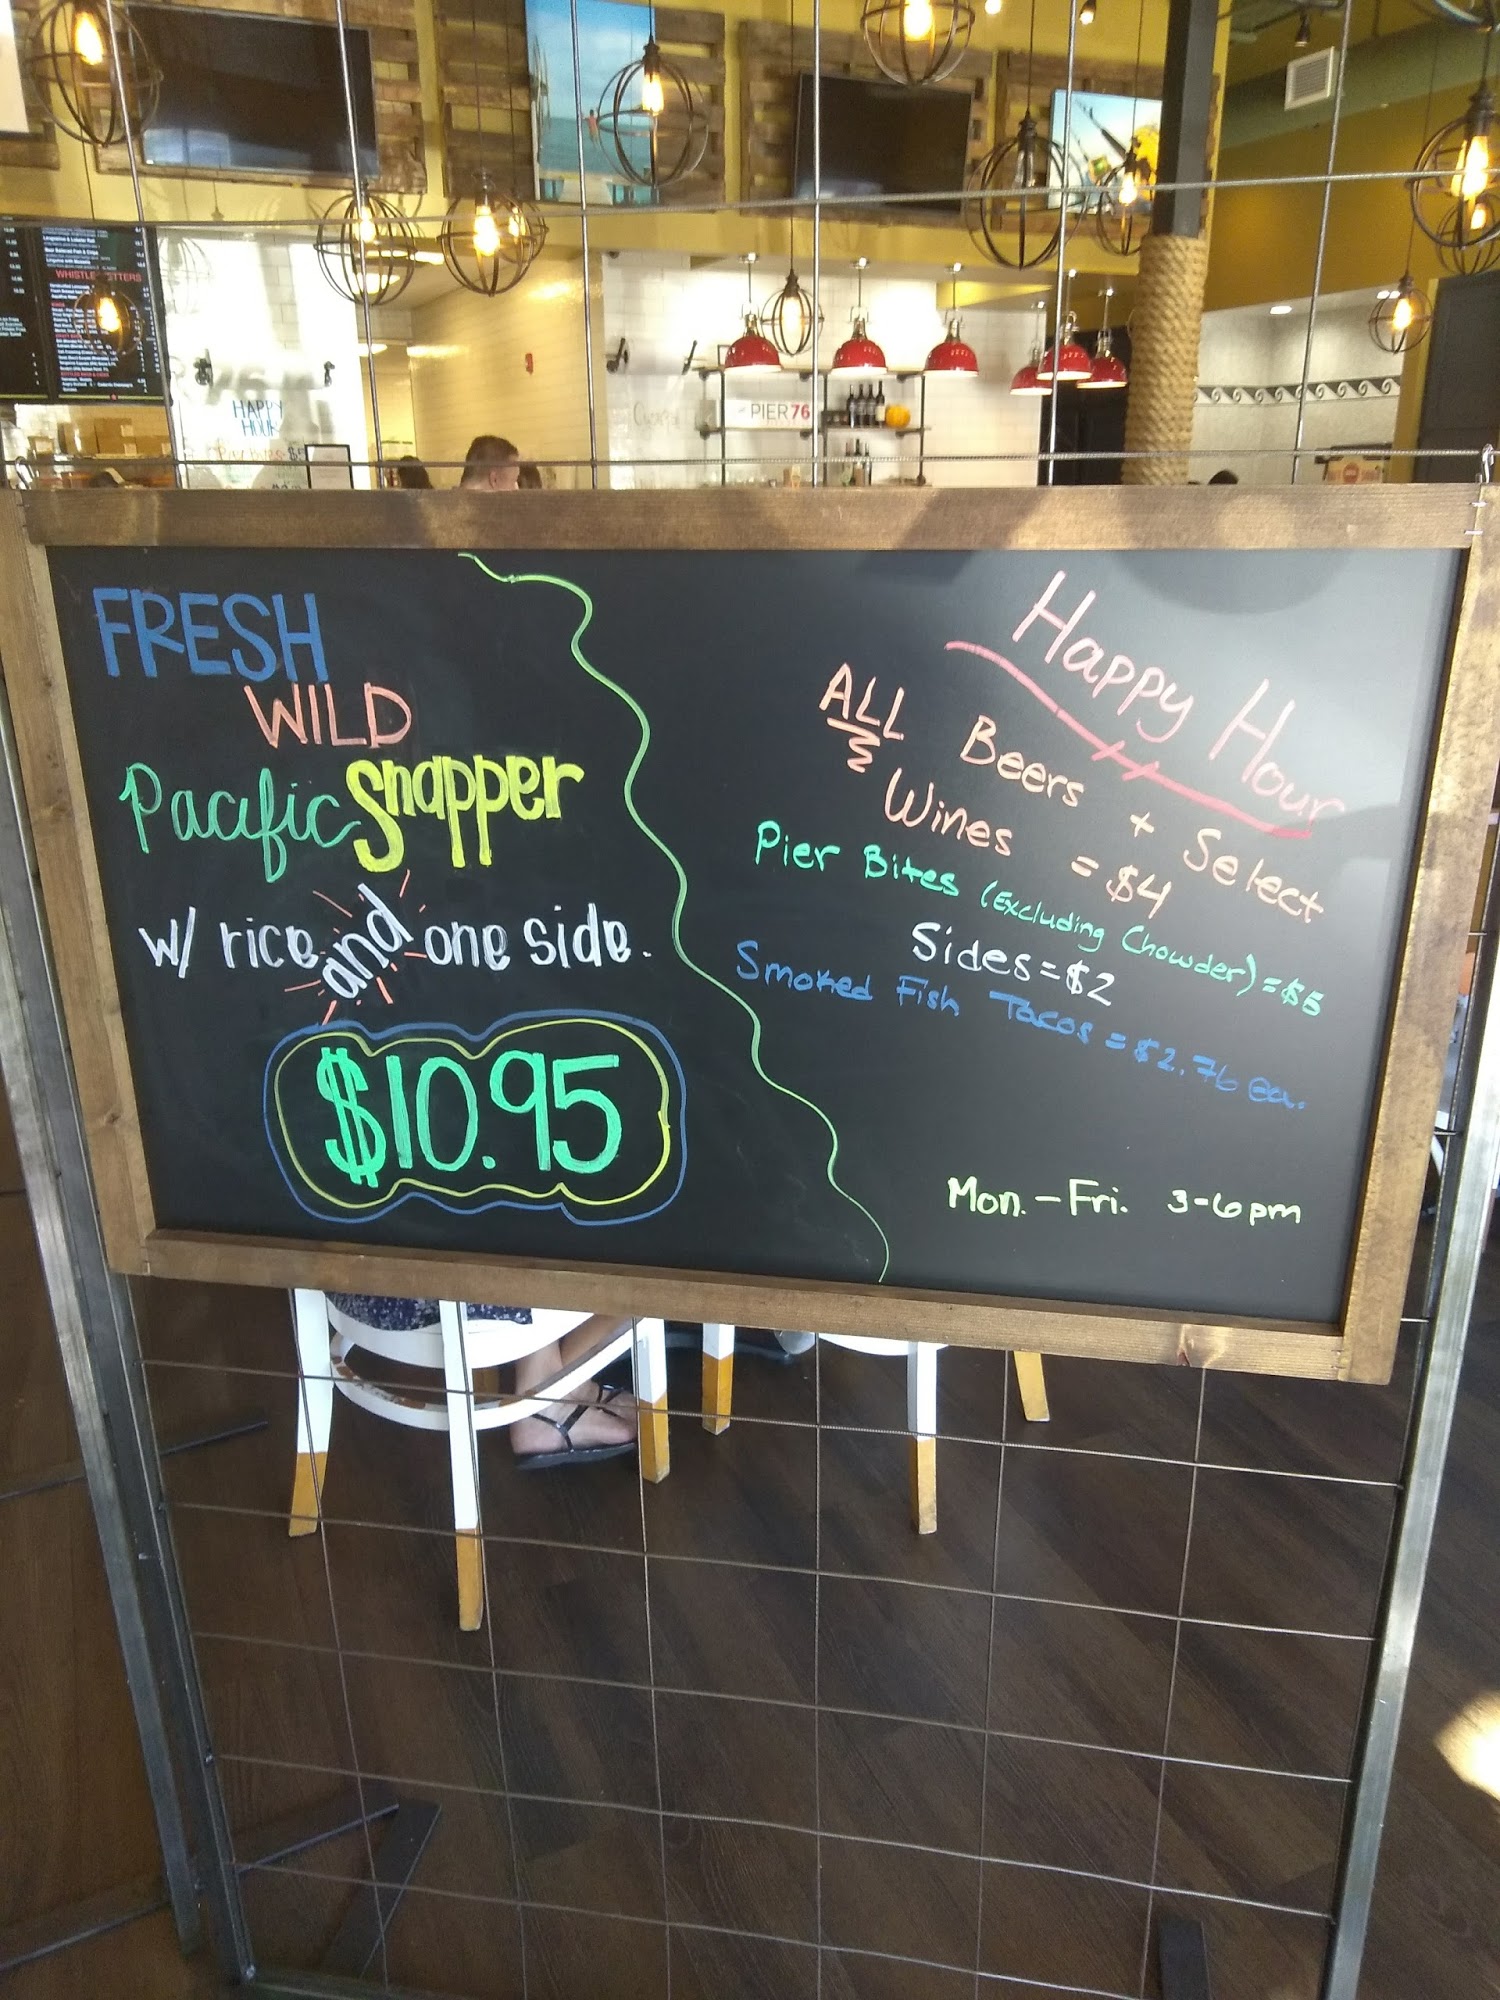 FRESH
WILD
Pacific Snapper
w/ rice and one side.
$10.95
Happy Hour
ALL Beers + Select
Wines = $4
Pier Bites (Excluding Chowder) = $5
Sides = $2
Smoked Fish Tacos = $2.76 ea.
Mon. - Fri. 3-6pm
PIER 76
HAPPY
HOUR
WHISTLE WETTERS